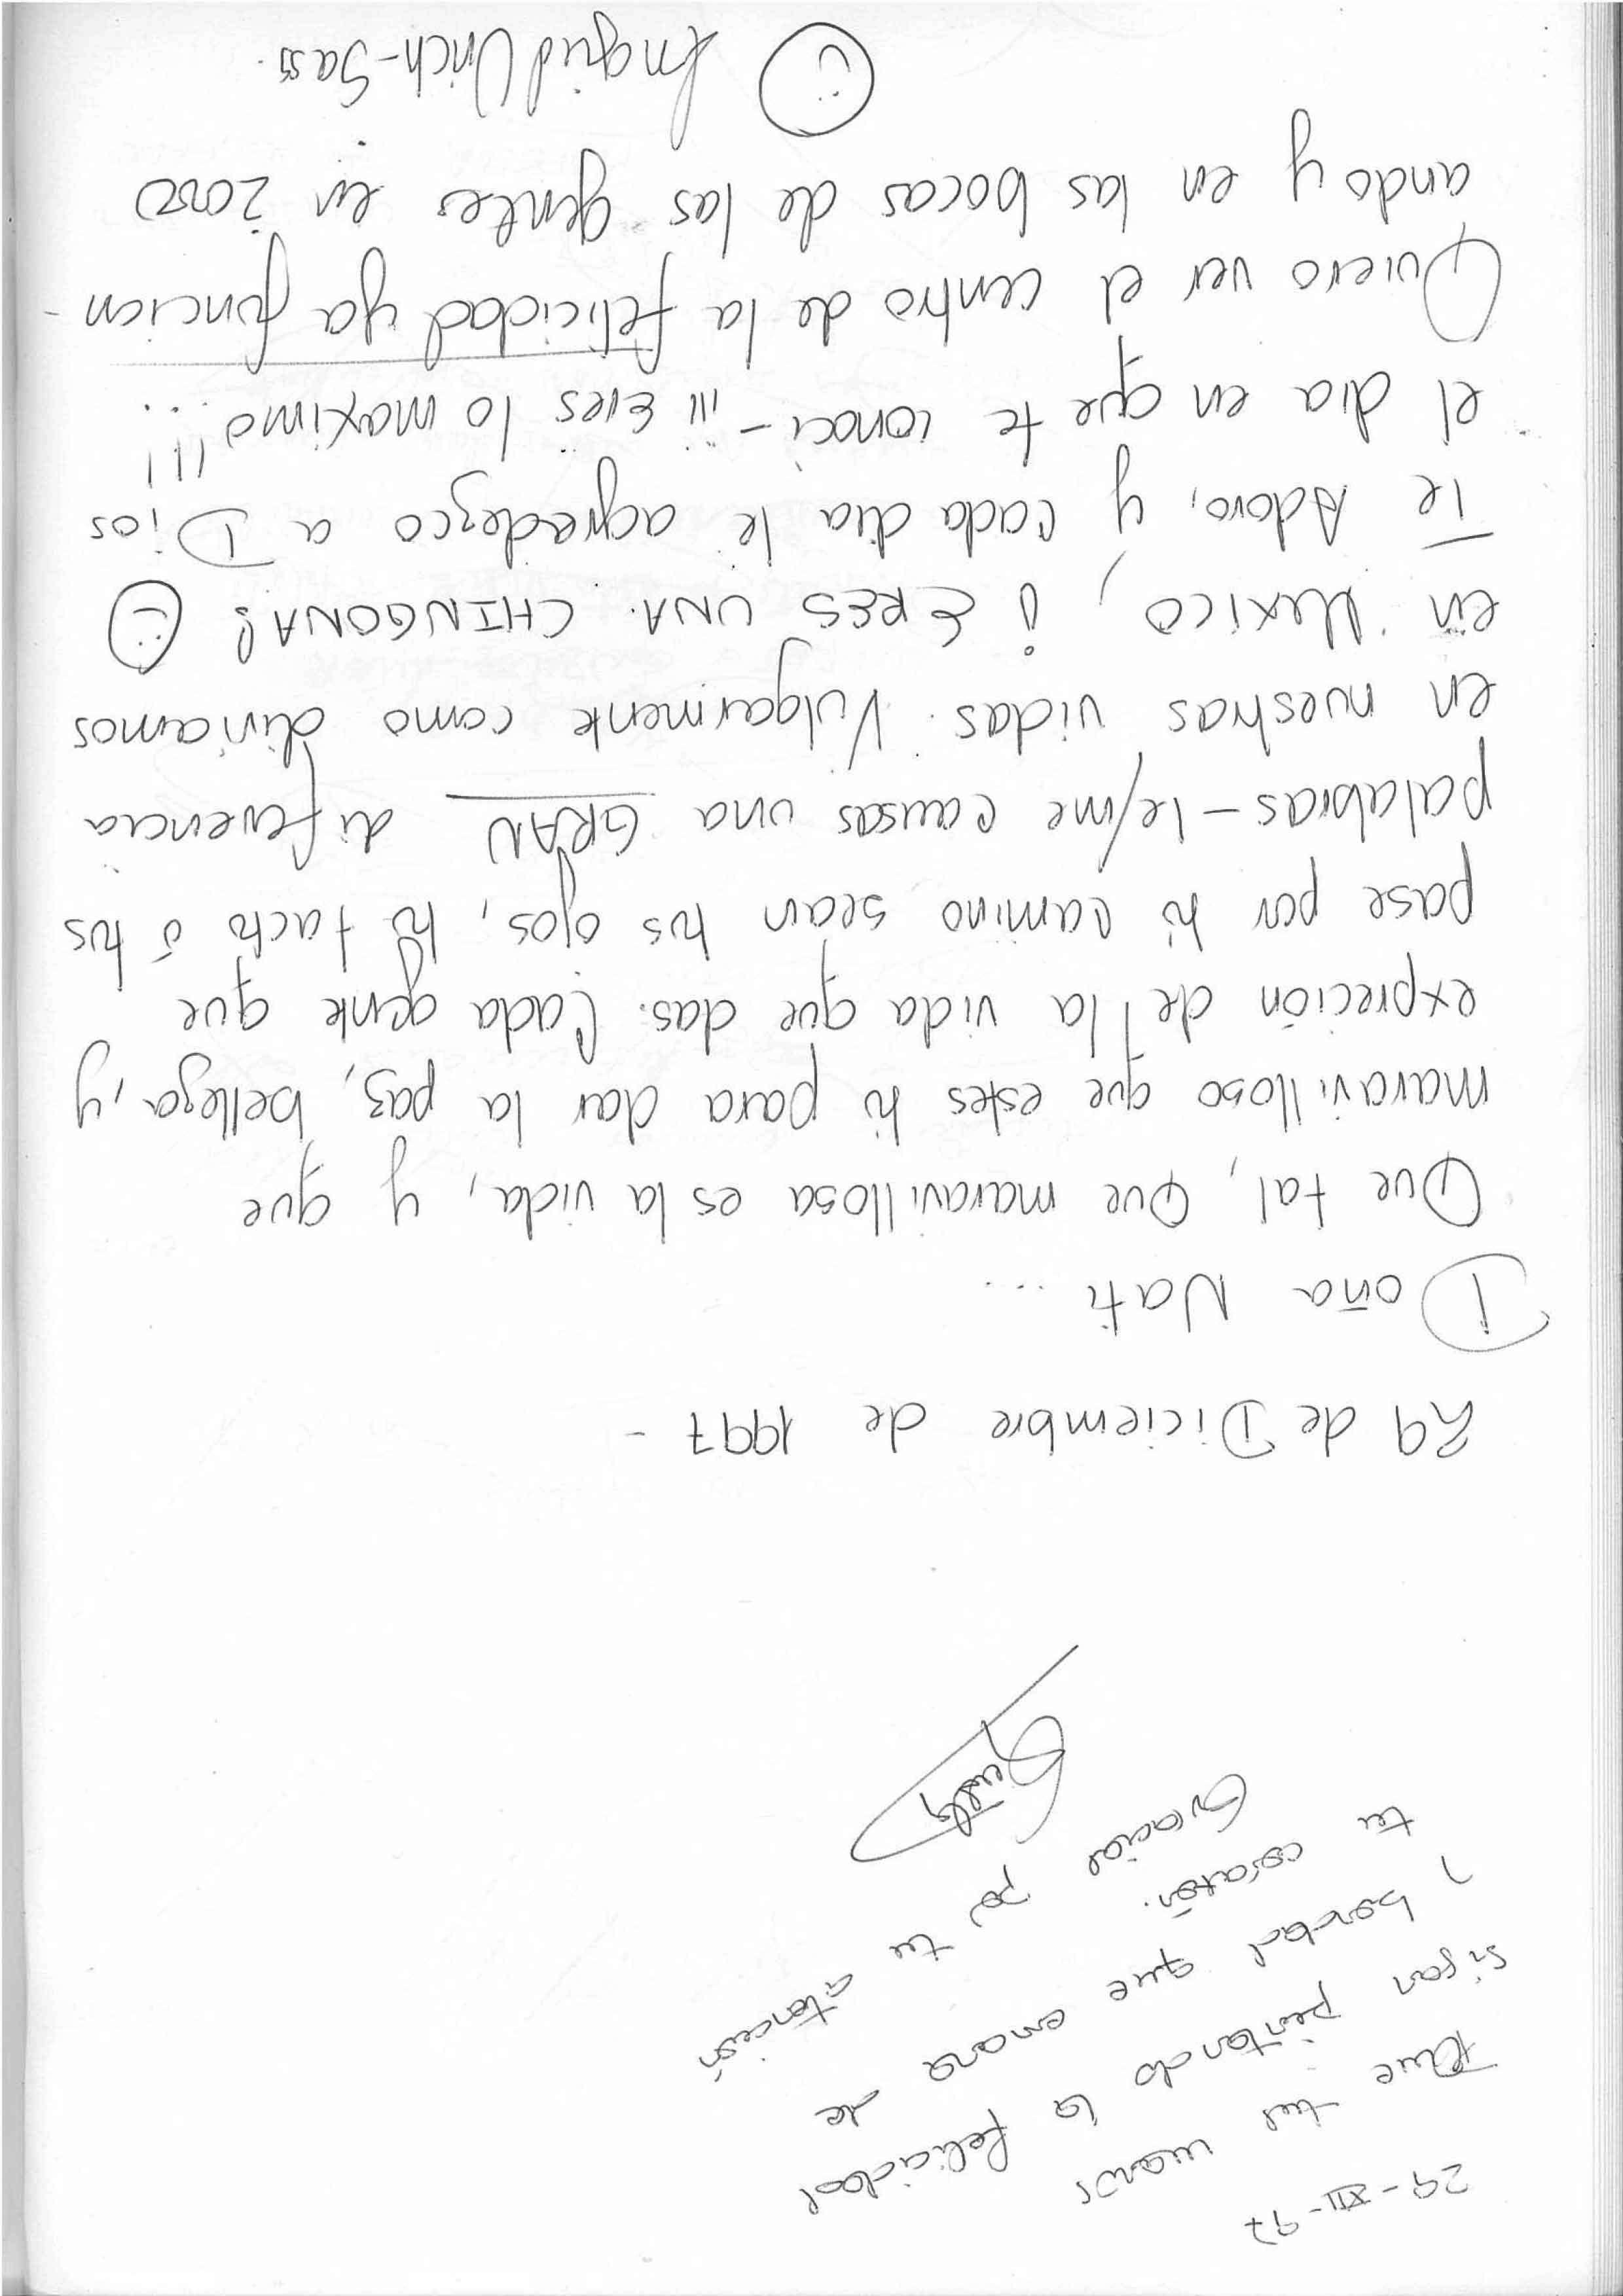 29-XII-97
Que tus manos
sigan pintando la felicidad
y bondad que emana de
tu corazón.
Gracias por tu atención
29 de Diciembre de 1997 -
Doña Nati ...
Que tal, Que maravillosa es la vida, y que
maravilloso que estes ti para dar la paz, belleza, y
expreción de la vida que das. Cada gente que
pase por ti camino sean tus ojos, tu tacto ó tus
palabras - le/me causas una GRAN diferencia
en nuestras vidas. Vulgarmente como diriamos
en Mexico, ¡ ERES UNA CHINGONA!
Te Adoro, y cada dia le agredezco a Dios
el dia en que te conoci - ¡¡¡ Eres lo maximo!!! ...
Quiero ver el centro de la felicidad ya funcion-
ando y en las bocas de las gentes en 2000
Ingrid Urich-Sass.